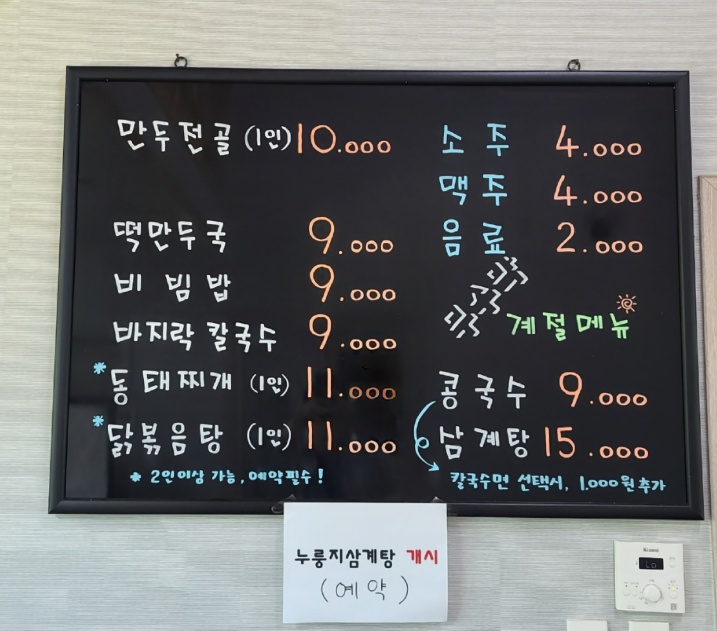 만두전골 (1인) 10.000
떡만두국 9.000
비빔밥 9.000
바지락 칼국수 9.000
*동태찌개 (1인) 11.000
*닭볶음탕 (1인) 11.000
* 2인이상 가능, 예약필수!
소주 4.000
맥주 4.000
음료 2.000
계절메뉴
콩국수 9.000
삼계탕 15.000
칼국수면 선택시, 1.000원 추가
누룽지삼계탕 개시
(예약)
Rinnai
Lo